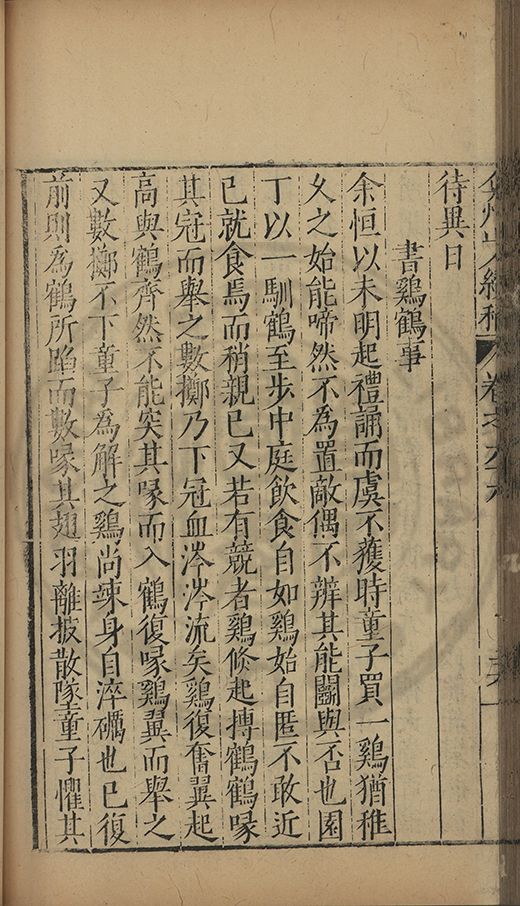 弇州山人續稿 卷之六十六
待異日
書鷄鶴事
余恒以未明起禮誦而虞不獲時童子買一鷄猶稚
久之始能啼然不為置敵偶不辨其能鬬與否也園
丁以一馴鶴至步中庭飲食自如鷄始自匿不敢近
已就食焉而稍親已又若有競者鷄倐起摶鶴鶴喙
其冠而舉之數擲乃下冠血涔涔流矣鷄復奮翼起
高與鶴齊然不能突其喙而入鶴復喙鷄翼而舉之
又數擲不下童子為解之鷄尚竦身自淬礪也已復
前則為鶴所蹈而數喙其翅羽離披散墜童子懼其